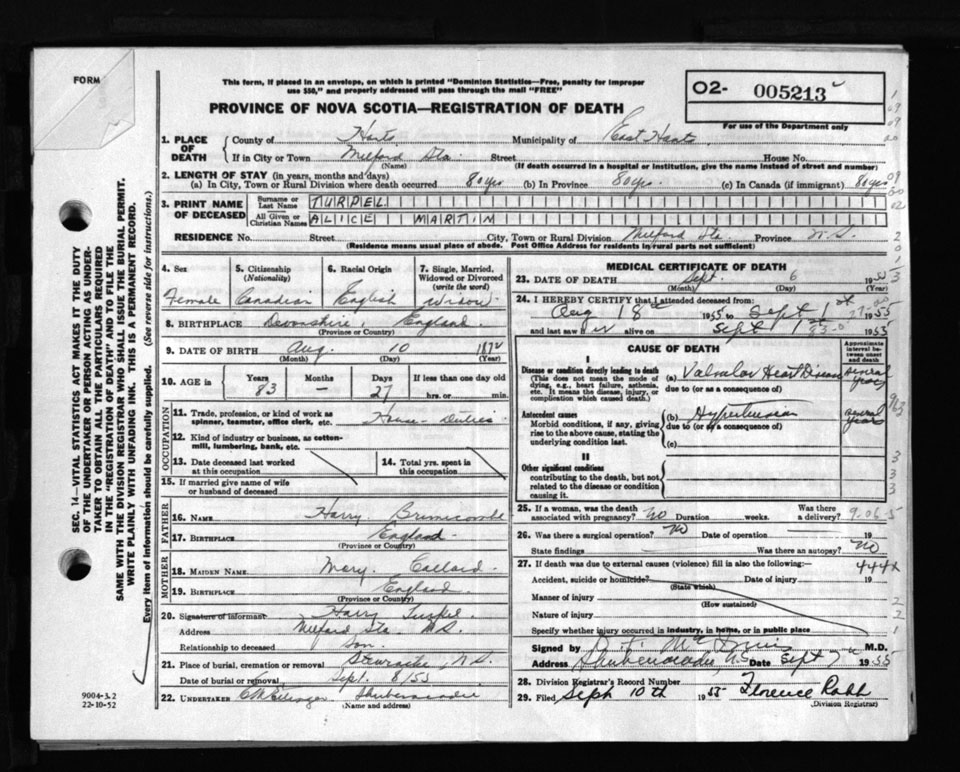 FORM
This form, if placed in an envelope, on which is printed "Dominion Statistics—Free, penalty for improper
use $50," and properly addressed will pass through the mail "FREE"
PROVINCE OF NOVA SCOTIA—REGISTRATION OF DEATH
O2- 005213
For use of the Department only
1. PLACE OF DEATH
County of Hants Municipality of East Hants
If in City or Town Milford Sta. Street House No.
(Name) (If death occurred in a hospital or institution, give the name instead of street and number)
2. LENGTH OF STAY (in years, months and days)
(a) In City, Town or Rural Division where death occurred 80 yrs (b) In Province 80 yrs. (c) In Canada (if immigrant) 80 yrs
3. PRINT NAME OF DECEASED
Surname or Last Name TURPEL
All Given or Christian Names ALICE MARTIN
RESIDENCE No. Street City, Town or Rural Division Milford Sta. Province N.S.
(Residence means usual place of abode. Post Office Address for residents in rural parts not sufficient)
4. Sex Female
5. Citizenship (Nationality) Canadian
6. Racial Origin English
7. Single, Married, Widowed or Divorced (write the word) Widow
8. BIRTHPLACE Devonshire England
(Province or Country)
9. DATE OF BIRTH Aug. 10 1872
(Month) (Day) (Year)
10. AGE in Years 83 Months - Days 27 If less than one day old hrs. or min.
OCCUPATION
11. Trade, profession, or kind of work as spinner, teamster, office clerk, etc. House-Duties
12. Kind of industry or business, as cotton-mill, lumbering, bank, etc.
13. Date deceased last worked at this occupation
14. Total yrs. spent in this occupation
15. If married give name of wife or husband of deceased
FATHER
16. NAME Harry Brimicombe
17. BIRTHPLACE England
(Province or Country)
MOTHER
18. MAIDEN NAME Mary Callard
19. BIRTHPLACE England
(Province or Country)
20. Signature of informant Harry Turpel
Address Milford Sta. N.S.
Relationship to deceased Son.
21. Place of burial, cremation or removal N.S.
Date of burial or removal Sept. 8/55
22. UNDERTAKER Shubenacadie
(Name and address)
MEDICAL CERTIFICATE OF DEATH
23. DATE OF DEATH Sept. 6 1955
(Month) (Day) (Year)
24. I HEREBY CERTIFY that I attended deceased from
Aug 18th 1955 to Sept 1955
and last saw er alive on Sept 1st 1955
CAUSE OF DEATH
Approximate interval between onset and death
I
Disease or condition directly leading to death
(This does not mean the mode of dying, e.g., heart failure, asthenia, etc. It means the disease, injury, or complication which caused death.)
(a) Valvular Heart Disease several years
due to (or as a consequence of)
Antecedent causes
Morbid conditions, if any, giving rise to the above cause, stating the underlying condition last.
(b) Hypertension several years
due to (or as a consequence of)
(c)
II
Other significant conditions
contributing to the death, but not related to the disease or condition causing it.
25. If a woman, was the death associated with pregnancy? NO Duration weeks. Was there a delivery? 9.06-5
26. Was there a surgical operation? NO Date of operation 19
State findings Was there an autopsy? NO
27. If death was due to external causes (violence) fill in also the following:— 444x
Accident, suicide or homicide? Date of injury 19
(State which)
Manner of injury
(How sustained)
Nature of injury
Specify whether injury occurred in industry, in home, or in public place
Signed by M.D.
Address Shubenacadie N.S. Date Sept 7th 1955
28. Division Registrar's Record Number
29. Filed Sept 10th 1955 Florence Robb
(Division Registrar)
SEC. 14—VITAL STATISTICS ACT MAKES IT THE DUTY
OF THE UNDERTAKER OR PERSON ACTING AS UNDER-
TAKER TO OBTAIN ALL THE PARTICULARS REQUIRED
IN THE "REGISTRATION OF DEATH" AND TO FILE THE
SAME WITH THE DIVISION REGISTRAR WHO SHALL ISSUE THE BURIAL PERMIT.
WRITE PLAINLY WITH UNFADING INK. THIS IS A PERMANENT RECORD.
Every item of information should be carefully supplied. (See reverse side for instructions.)
9004-3.2
22-10-52